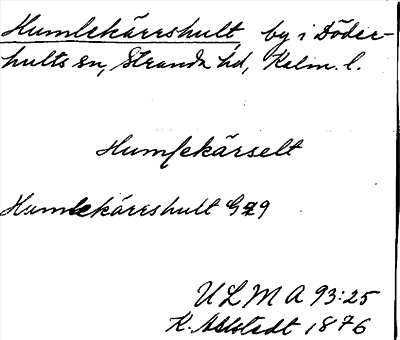 Humlekärrshult by i Döder-
hults sn, Stranda hd, Kalm. l.
Humlekärselt
Humlekärrshult G 29
ULMA 93:25
K. Ahlstedt 1876